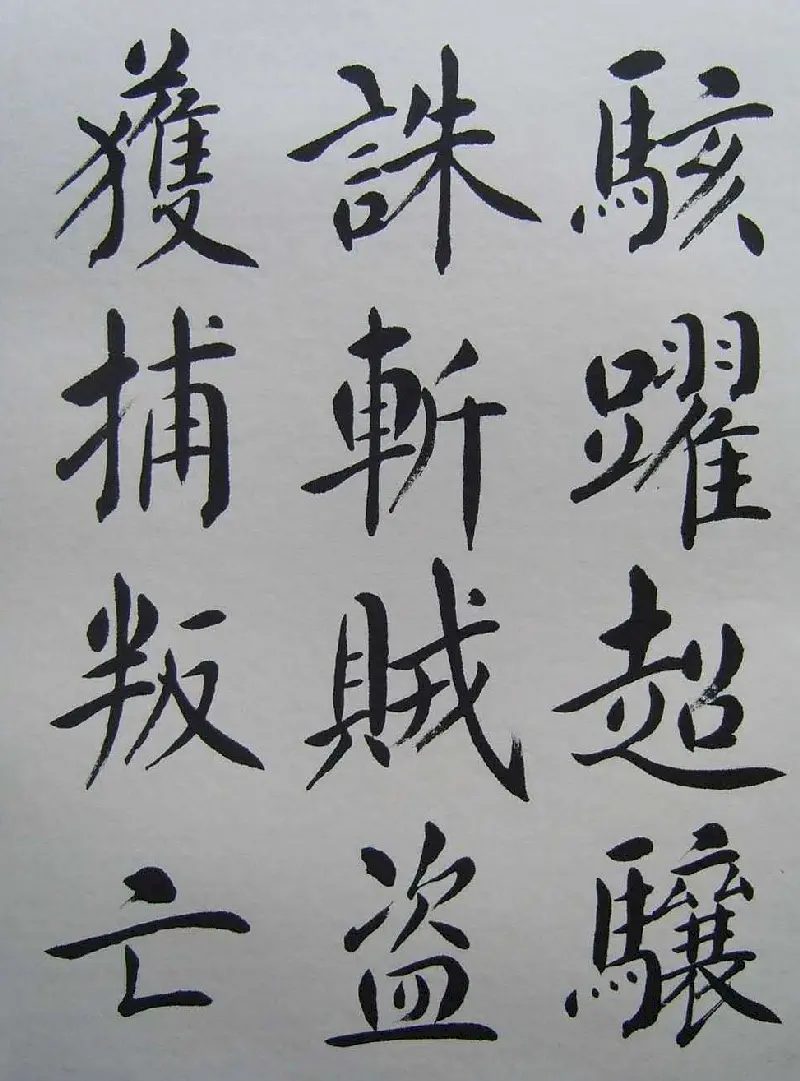 駭躍超驤
誅斬賊盗
獲捕叛亡